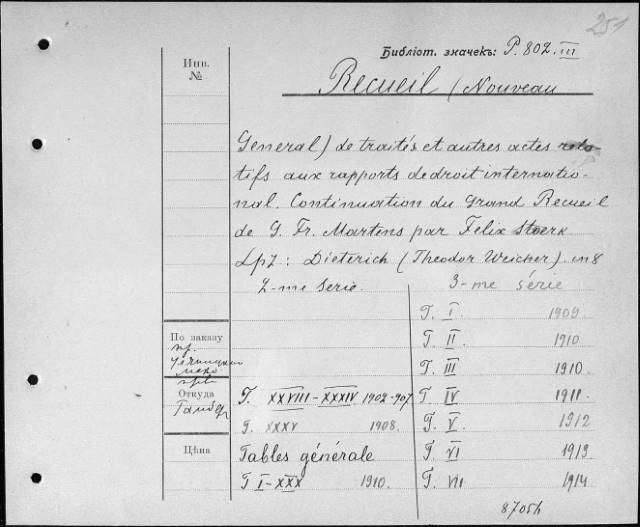 251
Библіот. значекъ: P. 802. III
Инв.
№
Recueil (Nouveau
General) de traités et autres actes rela-
tifs aux rapports de droit internatio-
nal. Continuation du Grand Recueil
de G. Fr. Martens par Felix Stoerk
Lpz.: Dieterich (Theodor Weicher). in 8
2-me serie.
3-me série
T. I 1909
T. II 1910
По заказу
пр.
T. III 1910.
Откуда
T. XXVIII-XXXIV 1902-907
T. IV 1911.
T. XXXV 1908.
T. V. 1912
Цѣна
Tables générale
T. VI 1913
T I-XXX 1910.
T. VII 1914
8705h